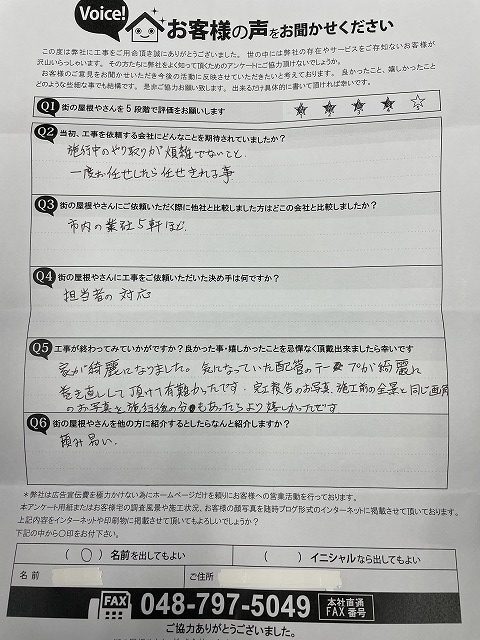 Voice!
お客様の声をお聞かせください
この度は弊社に工事をご用命頂き誠にありがとうございました。世の中には弊社の存在やサービスをご存知ないお客様が
沢山いらっしゃいます。その方たちに弊社をよく知って頂くためのアンケートにご協力頂けないでしょうか。
お客様のご意見をお聞かせいただき今後の活動に反映させていただきたいと考えております。良かったこと、嬉しかったこと
どのような些細な事でも結構です。是非ご協力お願い致します。出来るだけ具体的に書いて頂ければ幸いです。
Q1 街の屋根やさんを5段階で評価をお願いします
Q2 当初、工事を依頼する会社にどんなことを期待されていましたか?
施行中のやり取りが煩雑でないこと
一度お任せしたら任せきれる事
Q3 街の屋根やさんにご依頼いただく際に他社と比較しました方はどこの会社と比較しましたか?
市内の業社5軒ほど
Q4 街の屋根やさんに工事をご依頼いただいた決め手は何ですか?
担当者の対応
Q5 工事が終わってみていかがですか?良かった事・嬉しかったことを忌憚なく頂戴出来ましたら幸いです
家が綺麗になりました。気になっていた配管のテープが綺麗に
巻き直しして頂けて有難かったです。完工報告のお写真、施工前の全景と同じ画角
のお写真と施行後の分もあったらより嬉しかったです
Q6 街の屋根やさんを他の方に紹介するとしたらなんと紹介しますか?
頼み易い.
＊弊社は広告宣伝費を極力かけない為にホームページだけを頼りにお客様への営業活動を行っております。
本アンケート用紙またはお客様宅の調査風景や施工状況、お客様の顔写真を随時ブログ形式のインターネットに掲載させて頂いております。
上記内容をインターネットや印刷物に掲載させて頂いてもよろしいでしょうか?
下記の中から〇印をお付下さい。
( ○ ) 名前を出してもよい ( ) イニシャルなら出してもよい
名前 ご住所
FAX 048-797-5049 本社直通 FAX番号
ご協力ありがとうございました。